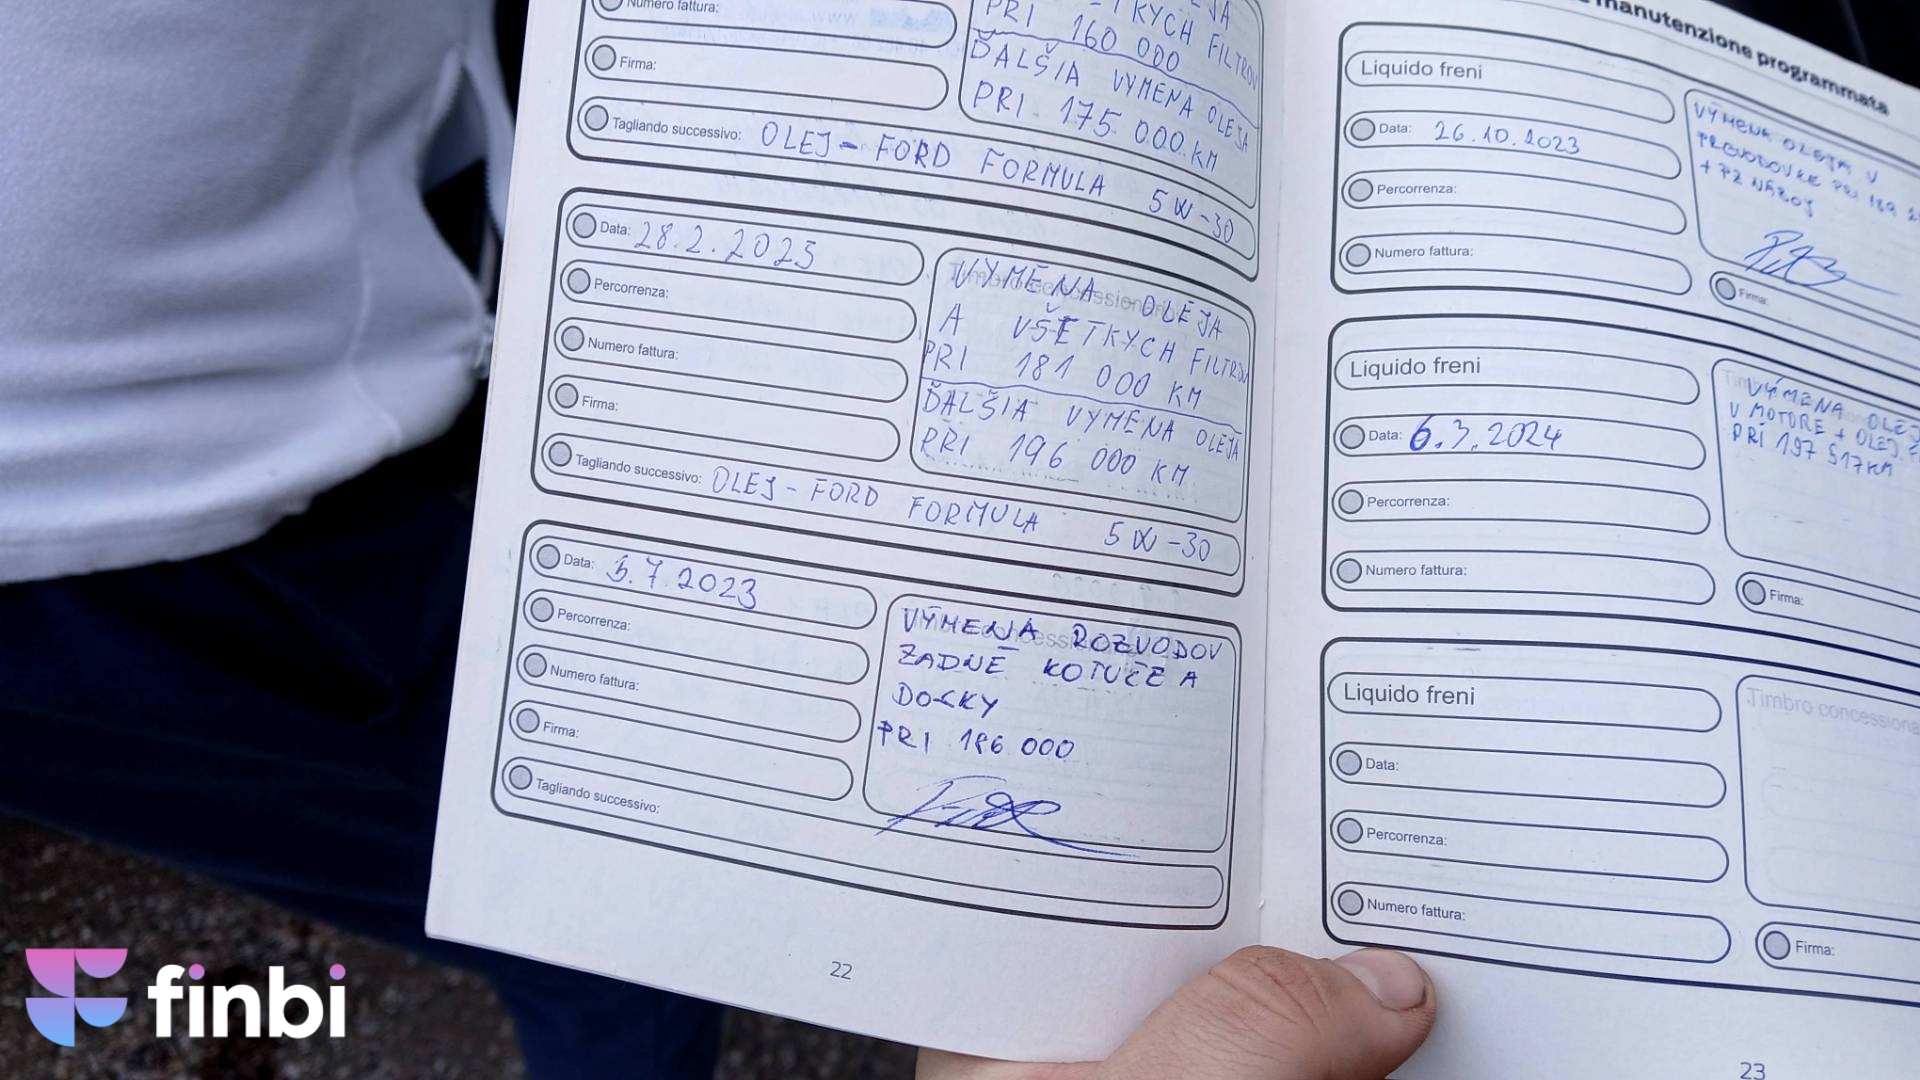 Numero fattura:
Firma:
Tagliando successivo: OLEJ - FORD FORMULA 5W-30
KÝCH FILTROV
PRI 160 000
ĎALŠIA VÝMENA OLEJA
PRI 175 000 KM
Data: 28.2.2023
Percorrenza:
Numero fattura:
Firma:
Tagliando successivo: OLEJ - FORD FORMULA 5W-30
VÝMENA OLEJA
A VŠETKÝCH FILTROV
PRI 181 000 KM
ĎALŠIA VÝMENA OLEJA
PRI 196 000 KM
Data: 5.7.2023
Percorrenza:
Numero fattura:
Firma:
Tagliando successivo:
VÝMENA ROZVODOV
ZADNÉ KOTÚČE A
DOSKY
PRI 186 000
22
manutenzione programmata
Liquido freni
Data: 26.10.2023
Percorrenza:
Numero fattura:
VÝMENA OLEJA V
PREVODOVKE PRI 189
Firma:
Liquido freni
Data: 6.3.2024
Percorrenza:
Numero fattura:
VÝMENA OLEJ
V MOTORE + OLEJ. F
PRI 197 517KM
Firma:
Liquido freni
Data:
Percorrenza:
Numero fattura:
Timbro concessiona
Firma:
23
finbi